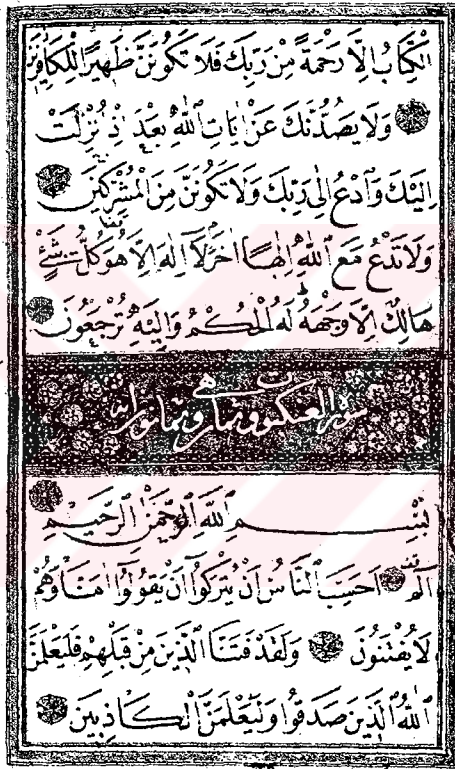 الْكِتَابُ اِلَّا رَحْمَةً مِنْ رَبِّكَ فَلَا تَكُونَنَّ ظَهِيرًا لِلْكَافِرِينَ
وَلَا يَصُدُّنَّكَ عَنْ اٰيَاتِ اللّٰهِ بَعْدَ اِذْ اُنْزِلَتْ
اِلَيْكَ وَادْعُ اِلٰى رَبِّكَ وَلَا تَكُونَنَّ مِنَ الْمُشْرِكِينَ
وَلَا تَدْعُ مَعَ اللّٰهِ اِلٰهًا اٰخَرَ لَا اِلٰهَ اِلَّا هُوَ كُلُّ شَيْءٍ
هَالِكٌ اِلَّا وَجْهَهُ لَهُ الْحُكْمُ وَاِلَيْهِ تُرْجَعُونَ
سورة العنكبوت وهي
بِسْمِ اللّٰهِ الرَّحْمٰنِ الرَّحِيمِ
الٓمٓ اَحَسِبَ النَّاسُ اَنْ يُتْرَكُوا اَنْ يَقُولُوا اٰمَنَّا وَهُمْ
لَا يُفْتَنُونَ وَلَقَدْ فَتَنَّا الَّذِينَ مِنْ قَبْلِهِمْ فَلَيَعْلَمَنَّ
اللّٰهُ الَّذِينَ صَدَقُوا وَلَيَعْلَمَنَّ الْكَاذِبِينَ